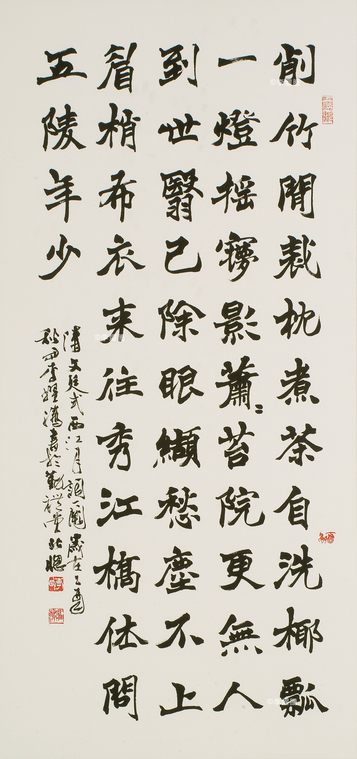 削竹閒裁枕煮茶自洗椰瓢
一燈摇夢影蕭〻苔院更無人
到世翳已除眼纈愁塵不上
眉梢布衣来往秀江橋休問
五陵年少
清文廷式西江月詞一闋歲在乙酉
書於